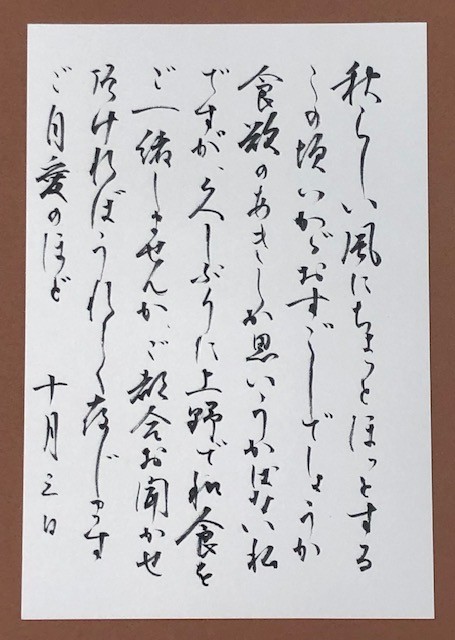 秋らしい風にちょっとほっとする
この頃いかがおすごしでしょうか
食欲のあきしか思いうかばない私
ですが、久しぶりに上野で和食を
ご一緒しませんか、ご都合お聞かせ
頂ければうれしく存じます
ご自愛のほど 十月三日